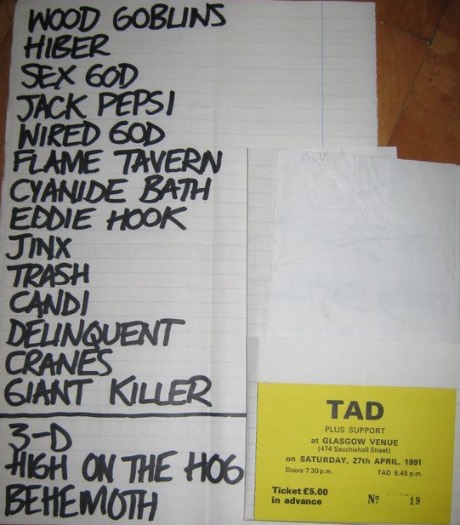 WOOD GOBLINS
HIBER
SEX GOD
JACK PEPSI
WIRED GOD
FLAME TAVERN
CYANIDE BATH
EDDIE HOOK
JINX
TRASH
CANDI
DELINQUENT
CRANES
GIANT KILLER
3-D
HIGH ON THE HOG
BEHEMOTH
TAD
PLUS SUPPORT
at GLASGOW VENUE
(474 Sauchiehall Street)
on SATURDAY, 27th APRIL, 1991
Doors 7.30 p.m. TAD 8.45 p.m.
Ticket £5.00
in advance
Nº 19